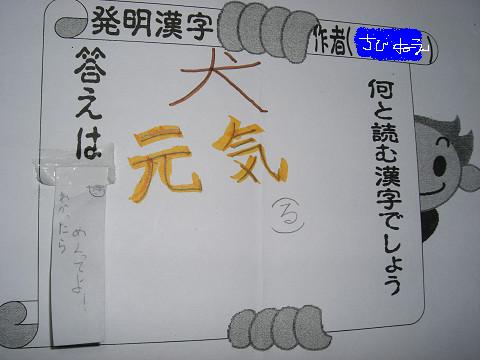 発明漢字
作者(さびねこ)
何と読む漢字でしょう
犬
元気
る
答えは
わかったら
めくってよー!